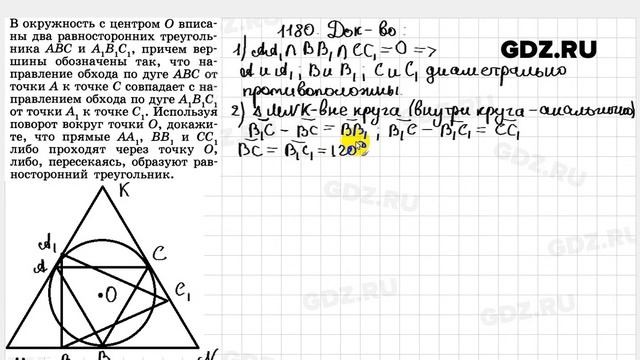 В окружность с центром O вписа-
ны два равносторонних треуголь-
ника ABC и A₁B₁C₁, причем вер-
шины обозначены так, что на-
правление обхода по дуге ABC от
точки A к точке C совпадает с на-
правлением обхода по дуге A₁B₁C₁
от точки A₁ к точке C₁. Используя
поворот вокруг точки O, докажи-
те, что прямые AA₁, BB₁ и CC₁
либо проходят через точку O,
либо, пересекаясь, образуют рав-
носторонний треугольник.
1180. Док-во:
1) AA₁ ∩ BB₁ ∩ CC₁ = O =>
A и A₁; B и B₁; C и C₁ диаметрально
противоположны.
2) Δ MNK - вне круга (внутри круга - аналогично)
B₁C - BC = BB₁; B₁C - B₁C₁ = CC₁
BC = B₁C₁ = 120°
GDZ.RU
K
A₁
A
C
C₁
O
B
N
GDZ.RU
GDZ.RU
GDZ.RU